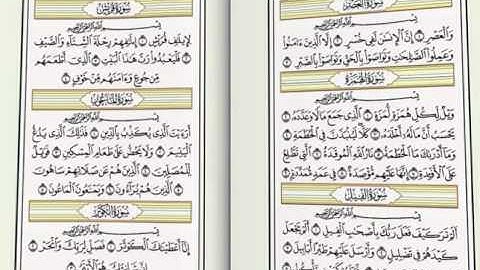 سُورَةُ العَصْرِ
بِسْمِ ٱللَّهِ ٱلرَّحْمَٰنِ ٱلرَّحِيمِ
وَٱلْعَصْرِ ۝١ إِنَّ ٱلْإِنسَٰنَ لَفِى خُسْرٍ ۝٢ إِلَّا ٱلَّذِينَ ءَامَنُوا۟
وَعَمِلُوا۟ ٱلصَّٰلِحَٰتِ وَتَوَاصَوْا۟ بِٱلْحَقِّ وَتَوَاصَوْا۟ بِٱلصَّبْرِ ۝٣
سُورَةُ الهُمَزَةِ
بِسْمِ ٱللَّهِ ٱلرَّحْمَٰنِ ٱلرَّحِيمِ
وَيْلٌ لِّكُلِّ هُمَزَةٍ لُّمَزَةٍ ۝١ ٱلَّذِى جَمَعَ مَالًا وَعَدَّدَهُۥ ۝٢
يَحْسَبُ أَنَّ مَالَهُۥٓ أَخْلَدَهُۥ ۝٣ كَلَّا لَيُنۢبَذَنَّ فِى ٱلْحُطَمَةِ ۝٤
وَمَآ أَدْرَىٰكَ مَا ٱلْحُطَمَةُ ۝٥ نَارُ ٱللَّهِ ٱلْمُوقَدَةُ ۝٦ ٱلَّتِى تَطَّلِعُ
عَلَى ٱلْأَفْـِٔدَةِ ۝٧ إِنَّهَا عَلَيْهِم مُّؤْصَدَةٌ ۝٨ فِى عَمَدٍ مُّمَدَّدَةٍۭ ۝٩
سُورَةُ الفِيلِ
بِسْمِ ٱللَّهِ ٱلرَّحْمَٰنِ ٱلرَّحِيمِ
أَلَمْ تَرَ كَيْفَ فَعَلَ رَبُّكَ بِأَصْحَٰبِ ٱلْفِيلِ ۝١ أَلَمْ يَجْعَلْ
كَيْدَهُمْ فِى تَضْلِيلٍ ۝٢ وَأَرْسَلَ عَلَيْهِمْ طَيْرًا أَبَابِيلَ ۝٣
سُورَةُ قُرَيْشٍ
بِسْمِ ٱللَّهِ ٱلرَّحْمَٰنِ ٱلرَّحِيمِ
لِإِيلَٰفِ قُرَيْشٍ ۝١ إِۦلَٰفِهِمْ رِحْلَةَ ٱلشِّتَآءِ وَٱلصَّيْفِ
۝٢ فَلْيَعْبُدُوا۟ رَبَّ هَٰذَا ٱلْبَيْتِ ۝٣ ٱلَّذِىٓ أَطْعَمَهُم
مِّن جُوعٍ وَءَامَنَهُم مِّنْ خَوْفٍۭ ۝٤
سُورَةُ المَاعُونِ
بِسْمِ ٱللَّهِ ٱلرَّحْمَٰنِ ٱلرَّحِيمِ
أَرَءَيْتَ ٱلَّذِى يُكَذِّبُ بِٱلدِّينِ ۝١ فَذَٰلِكَ ٱلَّذِى يَدُعُّ
ٱلْيَتِيمَ ۝٢ وَلَا يَحُضُّ عَلَىٰ طَعَامِ ٱلْمِسْكِينِ ۝٣ فَوَيْلٌ
لِّلْمُصَلِّينَ ۝٤ ٱلَّذِينَ هُمْ عَن صَلَاتِهِمْ سَاهُونَ
۝٥ ٱلَّذِينَ هُمْ يُرَآءُونَ ۝٦ وَيَمْنَعُونَ ٱلْمَاعُونَ ۝٧
سُورَةُ الكَوْثَرِ
بِسْمِ ٱللَّهِ ٱلرَّحْمَٰنِ ٱلرَّحِيمِ
إِنَّآ أَعْطَيْنَٰكَ ٱلْكَوْثَرَ ۝١ فَصَلِّ لِرَبِّكَ وَٱنْحَرْ ۝٢
إِنَّ شَانِئَكَ هُوَ ٱلْأَبْتَرُ